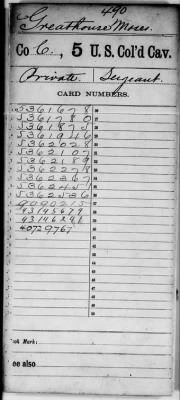 490
Greathouse Moses.
Co C., 5 U. S. Col'd Cav.
Private. Sergeant.
CARD NUMBERS.
5361678
5361780
5361875
5361946
5362028
5362107
5362189
5362278
5362367
5362451
5362536
9090215
43145679
43146291
40729767
ook Mark:
ee also